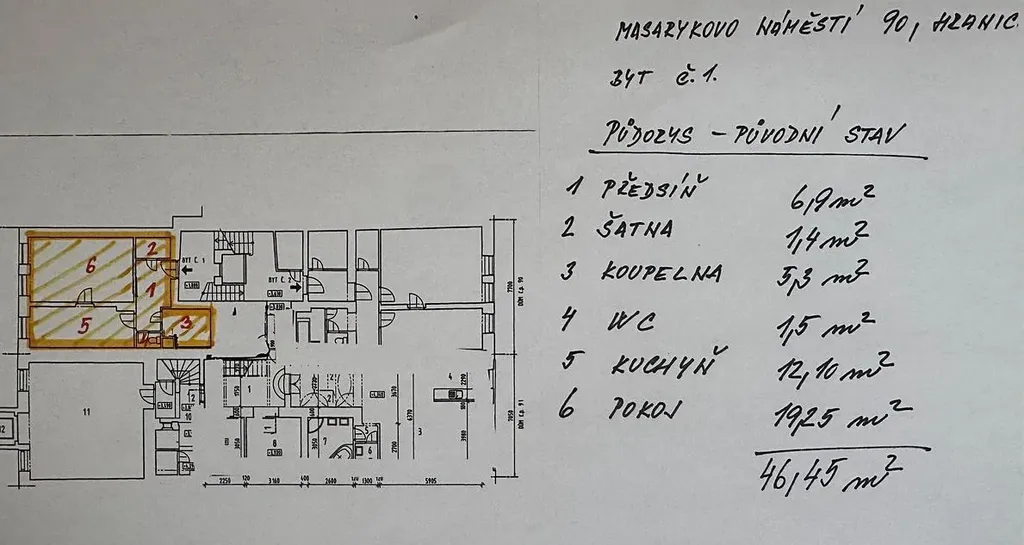 MASARYKOVO NÁMĚSTÍ 90, HRANIC
BYT Č.1.
PŮDORYS - PŮVODNÍ STAV
1 PŘEDSÍŇ 6,9 m²
2 ŠATNA 1,4 m²
3 KOUPELNA 5,3 m²
4 WC 1,5 m²
5 KUCHYŇ 12,10 m²
6 POKOJ 19,25 m²
46,45 m²
6
2
1
5
3
4
BYT Č. 1
BYT Č. 2
11
12
10
1
2
8
7
5
6
4
3
2250 120 3160 400 2600 1300 5905
7700
DOM č.p. 90
7050
DOM č.p. 91